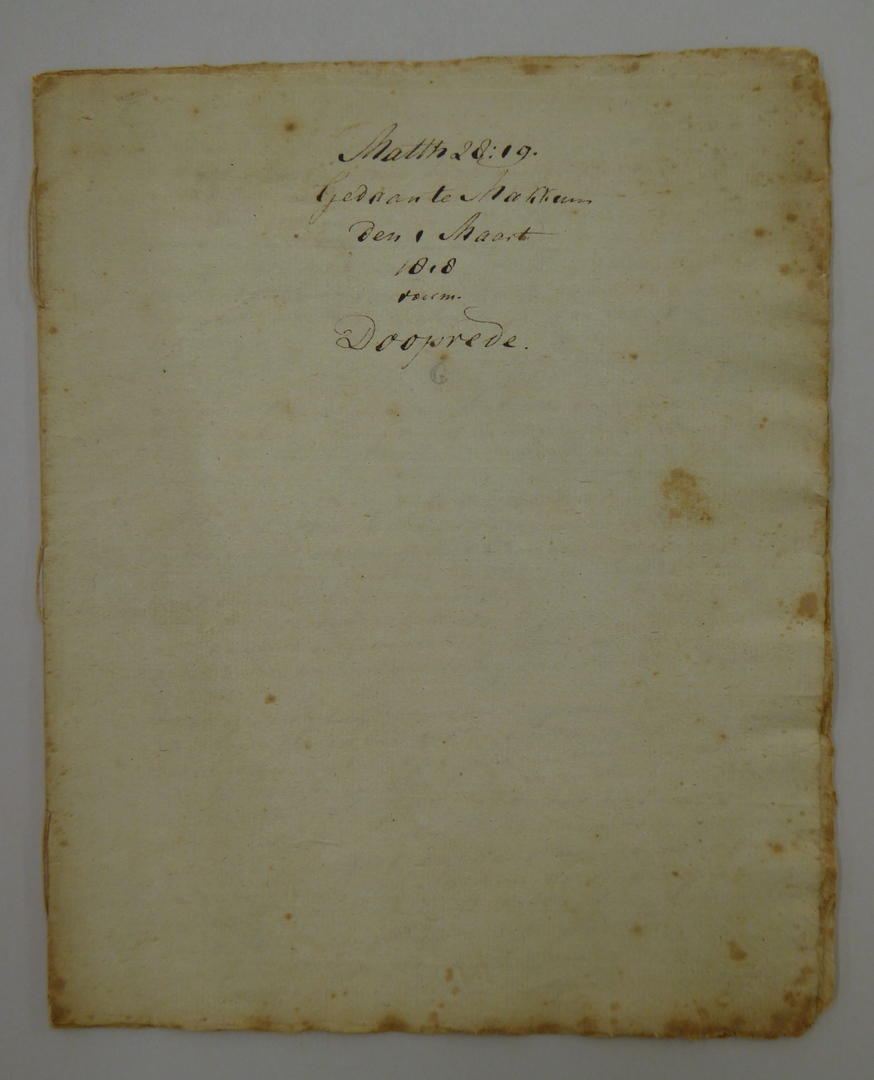 Matth 28:19.
Gedaan te Makkum
den 1 Maart
1818
voorm.
Dooprede.
G